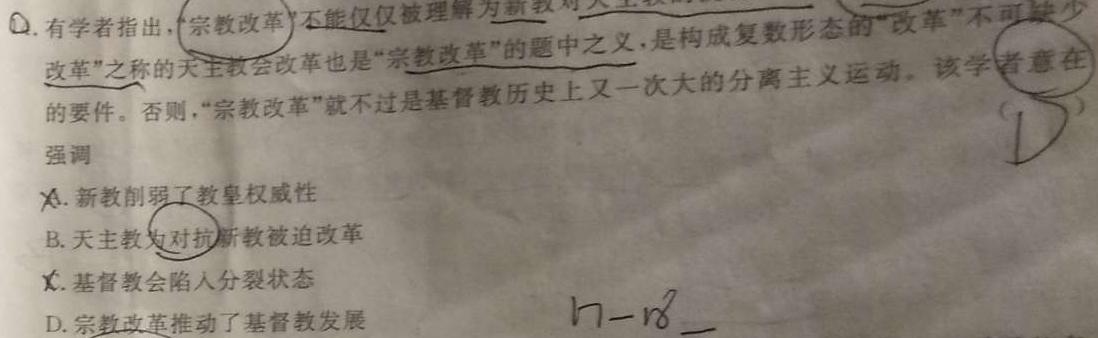 有学者指出,“宗教改革”不能仅仅被理解为新教对天主教的
改革”之称的天主教会改革也是“宗教改革”的题中之义,是构成复数形态的“改革”不可缺少
的要件。否则,“宗教改革”就不过是基督教历史上又一次大的分离主义运动。该学者意在
强调
( D )
A. 新教削弱了教皇权威性
B. 天主教为对抗新教被迫改革
C. 基督教会陷入分裂状态
D. 宗教改革推动了基督教发展
17-18